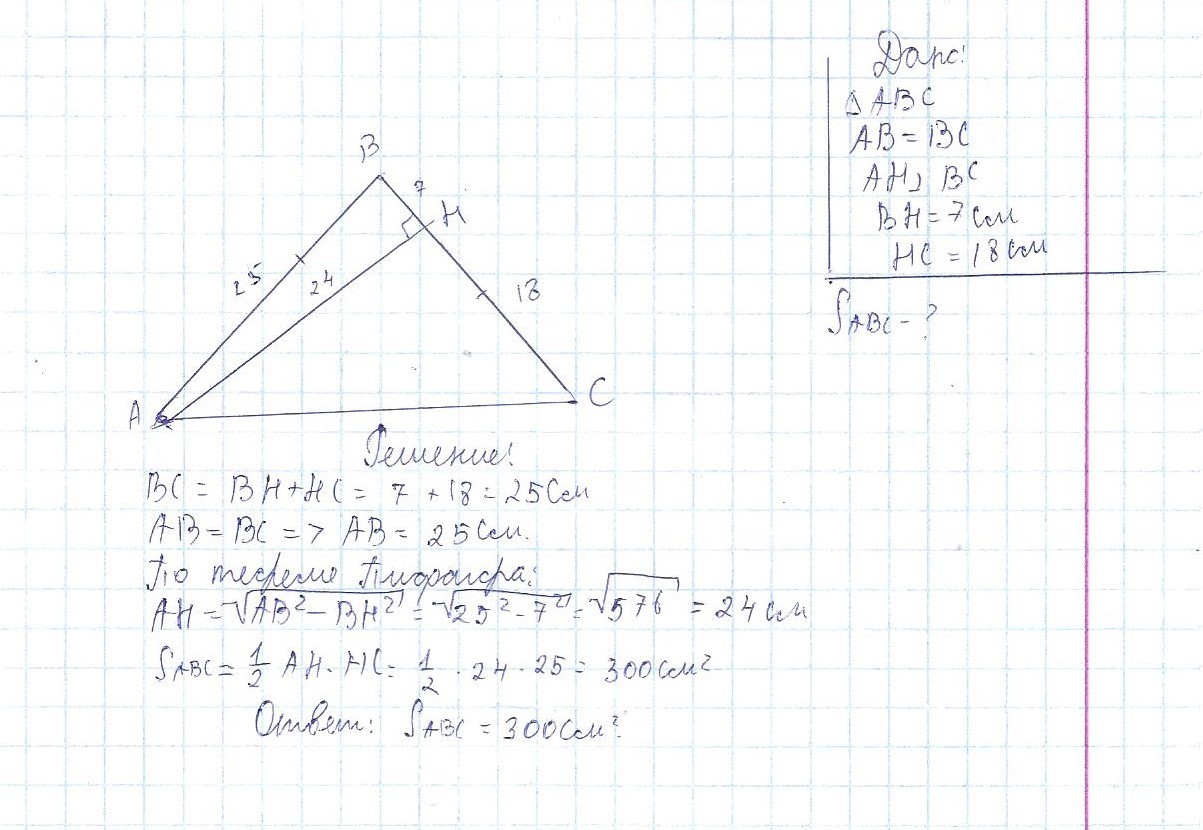 Дано:
△ ABC
AB = BC
AH ⊥ BC
BH = 7 см
HC = 18 см
S ABC - ?
B
7
H
25
24
18
A
C
Решение:
BC = BH + HC = 7 + 18 = 25 см
AB = BC => AB = 25 см.
По теореме Пифагора:
AH = √AB² - BH² = √25² - 7² = √576 = 24 см
S ABC = 1/2 AH · HC = 1/2 · 24 · 25 = 300 см²
Ответ: S ABC = 300 см².